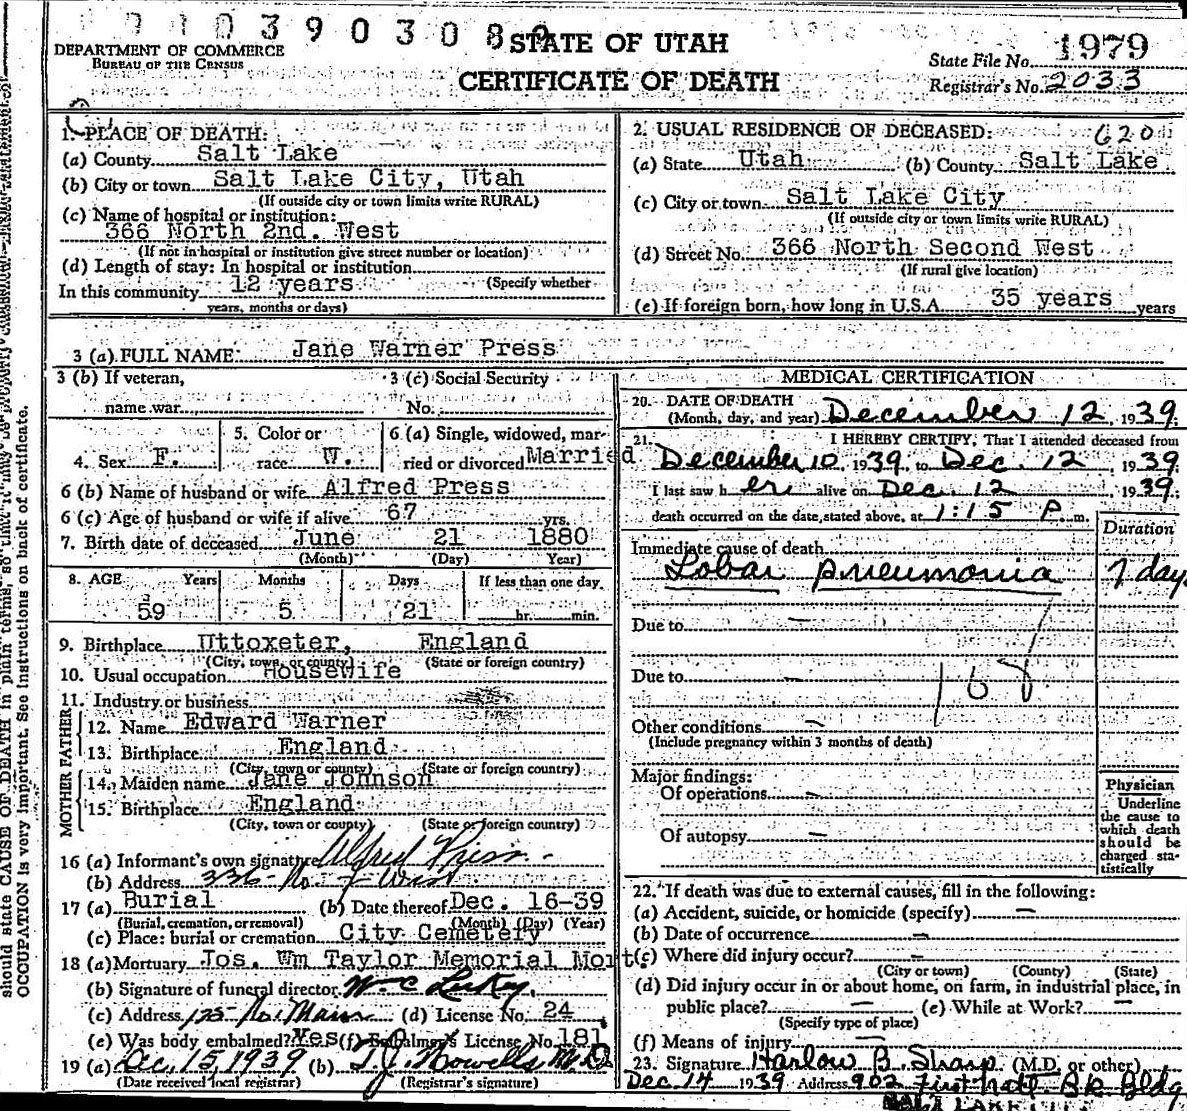 390308
STATE OF UTAH
CERTIFICATE OF DEATH
DEPARTMENT OF COMMERCE
BUREAU OF THE CENSUS
State File No. 1979
Registrar's No. 2033
1. PLACE OF DEATH:
(a) County Salt Lake
(b) City or town Salt Lake City, Utah
(If outside city or town limits write RURAL)
(c) Name of hospital or institution:
366 North 2nd. West
(If not in hospital or institution give street number or location)
(d) Length of stay: In hospital or institution
In this community 12 years (Specify whether
years, months or days)
2. USUAL RESIDENCE OF DECEASED: 620
(a) State Utah (b) County Salt Lake
(c) City or town Salt Lake City
(If outside city or town limits write RURAL)
(d) Street No. 366 North Second West
(If rural give location)
(e) If foreign born, how long in U.S.A. 35 years years
3 (a) FULL NAME: Jane Warner Press
3 (b) If veteran,
name war
3 (c) Social Security
No.
4. Sex F.
5. Color or
race W.
6 (a) Single, widowed, mar-
ried or divorced Married
6 (b) Name of husband or wife Alfred Press
6 (c) Age of husband or wife if alive 67 yrs.
7. Birth date of deceased June 21 1880
(Month) (Day) Year)
8. AGE Years Months Days If less than one day
59 5 21 hr. min.
9. Birthplace Uttoxeter, England
(City, town, or county) (State or foreign country)
10. Usual occupation Housewife
11. Industry or business
FATHER
12. Name Edward Warner
13. Birthplace England
(City, town or county) (State or foreign country)
MOTHER
14. Maiden name Jane Johnson
15. Birthplace England
(City, town or county) (State or foreign country)
16 (a) Informant's own signature Alfred Press
(b) Address West
17 (a) Burial (b) Date thereof Dec. 16-39
(Burial, cremation, or removal) (Month) (Day) (Year)
(c) Place: burial or cremation City Cemetery
18 (a) Mortuary Jos. Wm Taylor Memorial Mort
(b) Signature of funeral director W. C.
(c) Address 125 No. Main (d) License No. 24
(e) Was body embalmed? Yes (f) Embalmer's License No. 181
19 (a) Dec. 15, 1939 (b) T. J. Howells M.D.
(Date received local registrar) (Registrar's signature)
MEDICAL CERTIFICATION
20. DATE OF DEATH
(Month, day, and year) December 12, 1939.
21. I HEREBY CERTIFY, That I attended deceased from
December 10, 1939, to Dec. 12 1939.
I last saw her alive on Dec. 12 1939.
death occurred on the date stated above, at 1:15 P. m.
Duration
Immediate cause of death
Lobar pneumonia 7 days
Due to —
168
Due to —
Other conditions —
(Include pregnancy within 3 months of death)
Major findings:
Of operations —
Of autopsy —
Physician
Underline
the cause to
which death
should be
charged sta-
tistically
22. If death was due to external causes, fill in the following:
(a) Accident, suicide, or homicide (specify) —
(b) Date of occurrence —
(c) Where did injury occur? —
(City or town) (County) (State)
(d) Did injury occur in or about home, on farm, in industrial place, in
public place? — (e) While at Work? —
(Specify type of place)
(f) Means of injury —
23. Signature Harlow B. Sharp (M.D. or other)
Dec. 14 1939 Address 902 First Natl. Bk. Bldg
SALT LAKE CITY
should state CAUSE OF DEATH in plain terms, so that it may be properly
OCCUPATION is very important. See instructions on back of certificate.